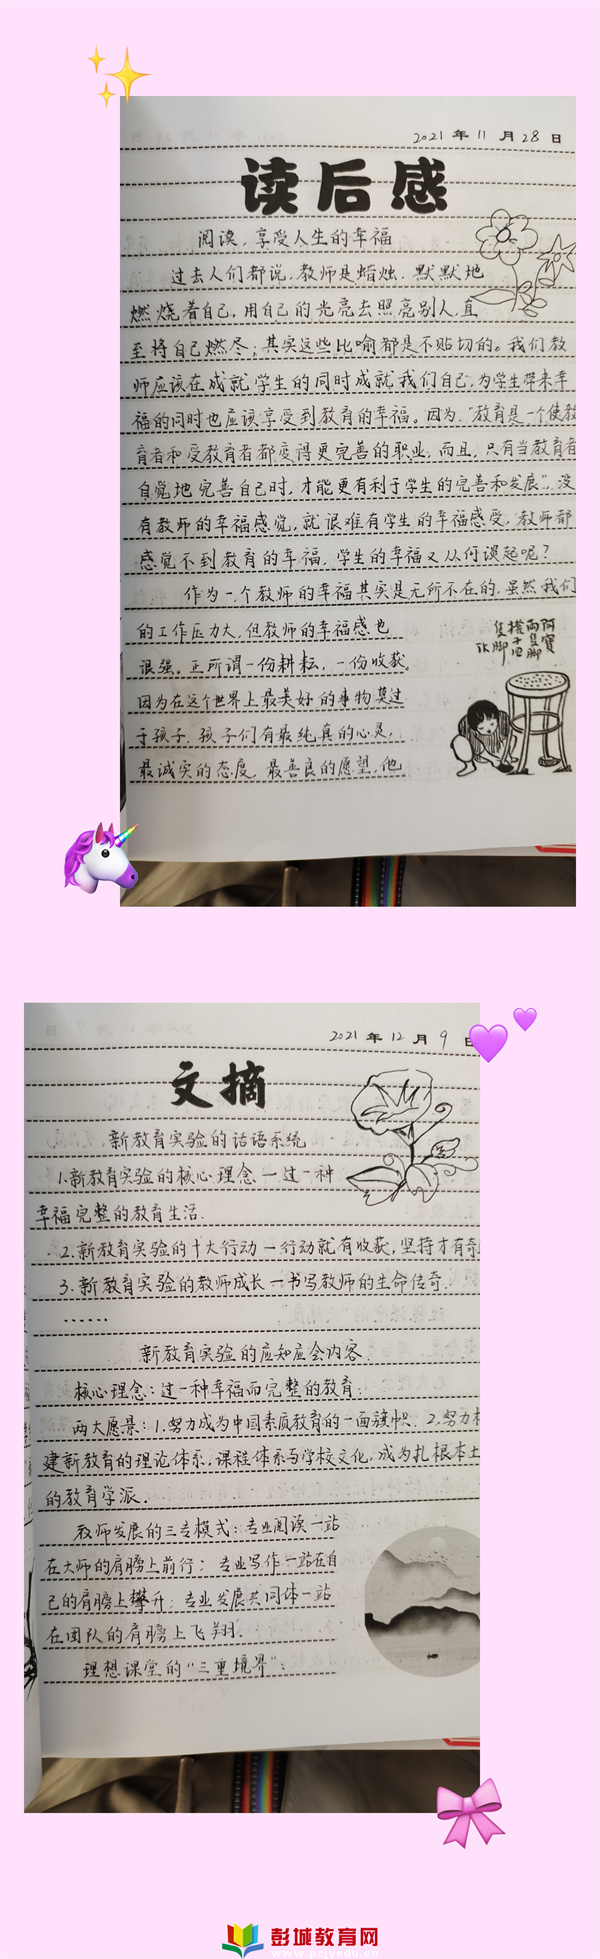 2021年11月28日
读后感
阅读,享受人生的幸福
过去人们都说,教师是蜡烛,默默地
燃烧着自己,用自己的光亮去照亮别人,直
至将自己燃尽;其实这些比喻都是不贴切的。我们教
师应该在成就学生的同时成就我们自己,为学生带来幸
福的同时也应该享受到教育的幸福。因为,“教育是一个使教
育者和受教育者都变得更完善的职业,而且,只有当教育者
自觉地完善自己时,才能更有利于学生的完善和发展”。没
有教师的幸福感觉,就很难有学生的幸福感受,教师都
感觉不到教育的幸福,学生的幸福又从何谈起呢?
作为一个教师的幸福其实是无所不在的,虽然我们
的工作压力大,但教师的幸福感也
很强。正所谓一份耕耘,一份收获。
因为在这个世界上最美好的事物莫过
于孩子,孩子们有最纯真的心灵,
最诚实的态度,最善良的愿望,他
阿寶
兩隻脚
櫈子四
隻脚
2021年12月9日
文摘
新教育实验的话语系统
1.新教育实验的核心理念—过一种
幸福完整的教育生活.
2.新教育实验的十大行动—行动就有收获,坚持才有奇
3.新教育实验的教师成长—书写教师的生命传奇.
......
新教育实验的应知应会内容.
核心理念:过一种幸福而完整的教育.
两大愿景:1.努力成为中国素质教育的一面旗帜.2.努力
建新教育的理论体系,课程体系与学校文化,成为扎根本土
的教育学派.
教师发展的三专模式:专业阅读—站
在大师的肩膀上前行;专业写作—站在自
己的肩膀上攀升;专业发展共同体—站
在团队的肩膀上飞翔.
理想课堂的“三重境界”:
彭城教育网
www.pcjyedu.cn